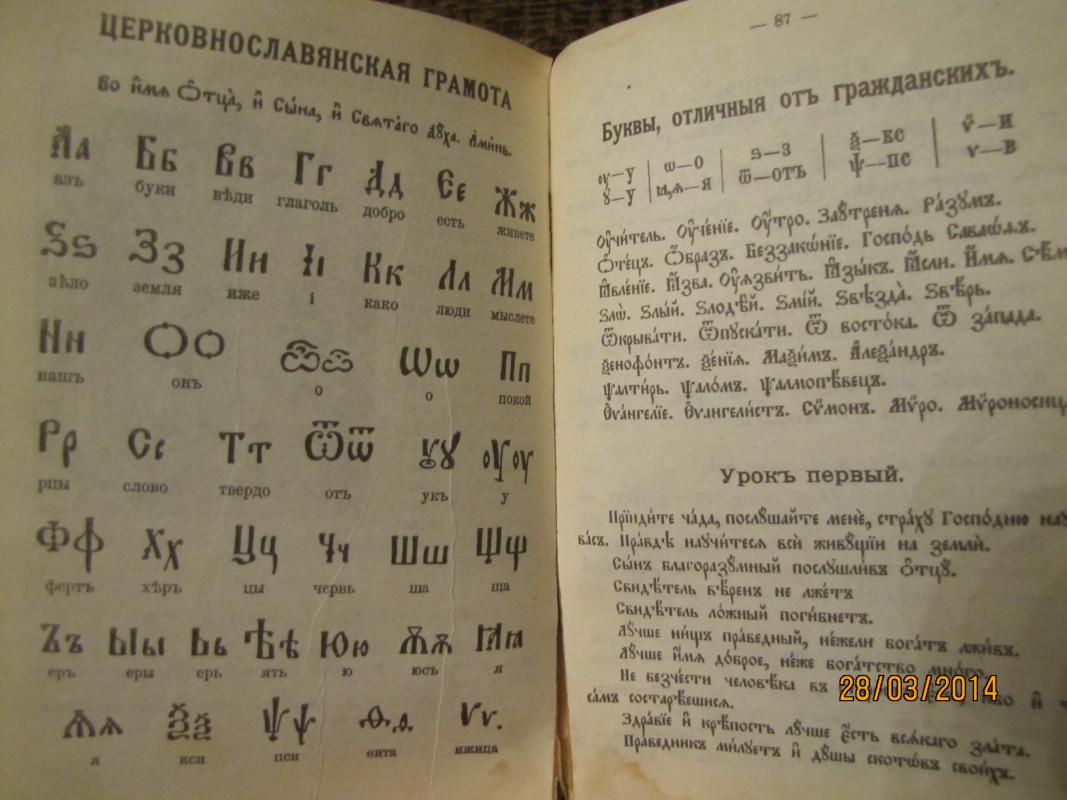 ЦЕРКОВНОСЛАВЯНСКАЯ ГРАМОТА
Во и҆́мѧ Ѻ҆тца̀, и҆ Сы́на, и҆ Свѧта́го Дꙋ́ха. А҆ми́нь.
Аа Бб Вв Гг Дд Єе Жж
азъ буки вѣди глаголь добро есть живете
Ѕѕ Зз Ин Іі Кк Лл Мм
зѣло земля иже і како люди мыслете
Нн Ѻѻ Ѽѽ Ѡѡ Пп
нашъ онъ о о покой
Рр Сс Тт Ѿѿ Ꙋꙋ Оуоу
рцы слово твердо отъ укъ у
Фф Хх Цц Чч Шш Щщ
фертъ хѣръ цы червь ша ща
Ъъ Ыы Ьь Ѣѣ Юю Ѫѫ Ꙗꙗ
еръ еры ерь ять ю юсъ я
Ѧѧ Ѯѯ Ѱѱ Ѳѳ Ѵѵ.
я кси пси ѳита ижица
— 87 —
Буквы, отличныя отъ гражданскихъ.
оу—у ѡ—о ѕ—з ѯ—кс ѵ̈—и
ꙋ—у ꙗ,ѧ—я ѿ—отъ ѱ—пс ѵ—в
Оу҆чи́тель. Оу҆че́нїе. Оу҆́тро. Заꙋ́тренѧ. Ра́зꙋмъ.
Ѻ҆те́цъ. Ѻ҆́бразъ. Беззако́нїе. Госпо́дь Саваѡ́ѳъ.
Ꙗ҆вле́нїе. Ꙗ҆́зва. Оу҆ѧзви́ть. Ꙗ҆зы́къ. Ꙗ҆́сли. И҆́мѧ.
Ѕло̀. Ѕлы́й. Ѕлодѣ́й. Ѕмі́й. Ѕвѣзда̀. Ѕвѣ́рь.
Ѿкрыва́ти. Ѿпꙋска́ти. Ѿ восто́ка. Ѿ за́пада.
Ѯенофо́нтъ. Ѯе́нїѧ. Маѯи́мъ. А҆леѯа́ндръ.
Ѱалти́рь. Ѱало́мъ. Ѱалмопѣ́вецъ.
Є҆ѵа́нгелїе. Є҆ѵангели́стъ. Сѵ́монъ. Мѵ́ро.
Урокъ первый.
Прїиди́те ча́да, послꙋ́шайте менѐ, стра́хꙋ Госпо́дню
ва́съ. Пра́вдѣ наꙋчи́тесѧ всѝ живꙋ́щїи на землѝ.
Сы́нъ благоразꙋ́мный послꙋшли́въ ѻ҆тцꙋ̀.
Свидѣ́тель вѣ́ренъ не лже́тъ
Свидѣ́тель ло́жный поги́бнетъ.
Лꙋ́чше ни́щъ пра́ведный, не́жели бога́тъ лжи́въ.
Лꙋ́чше и҆́мѧ до́брое, не́же бога́тство мно́го.
Не безче́сти человѣ́ка въ и҆
28/03/2014
са́мъ состарѣ́ешисѧ.
Здра́вїе и҆ крѣ́пость лꙋ́чше є҆́сть всѧ́каго зла́та.
Пра́ведник ми́лꙋетъ и҆ дꙋ́шы ското́въ свои́хъ.